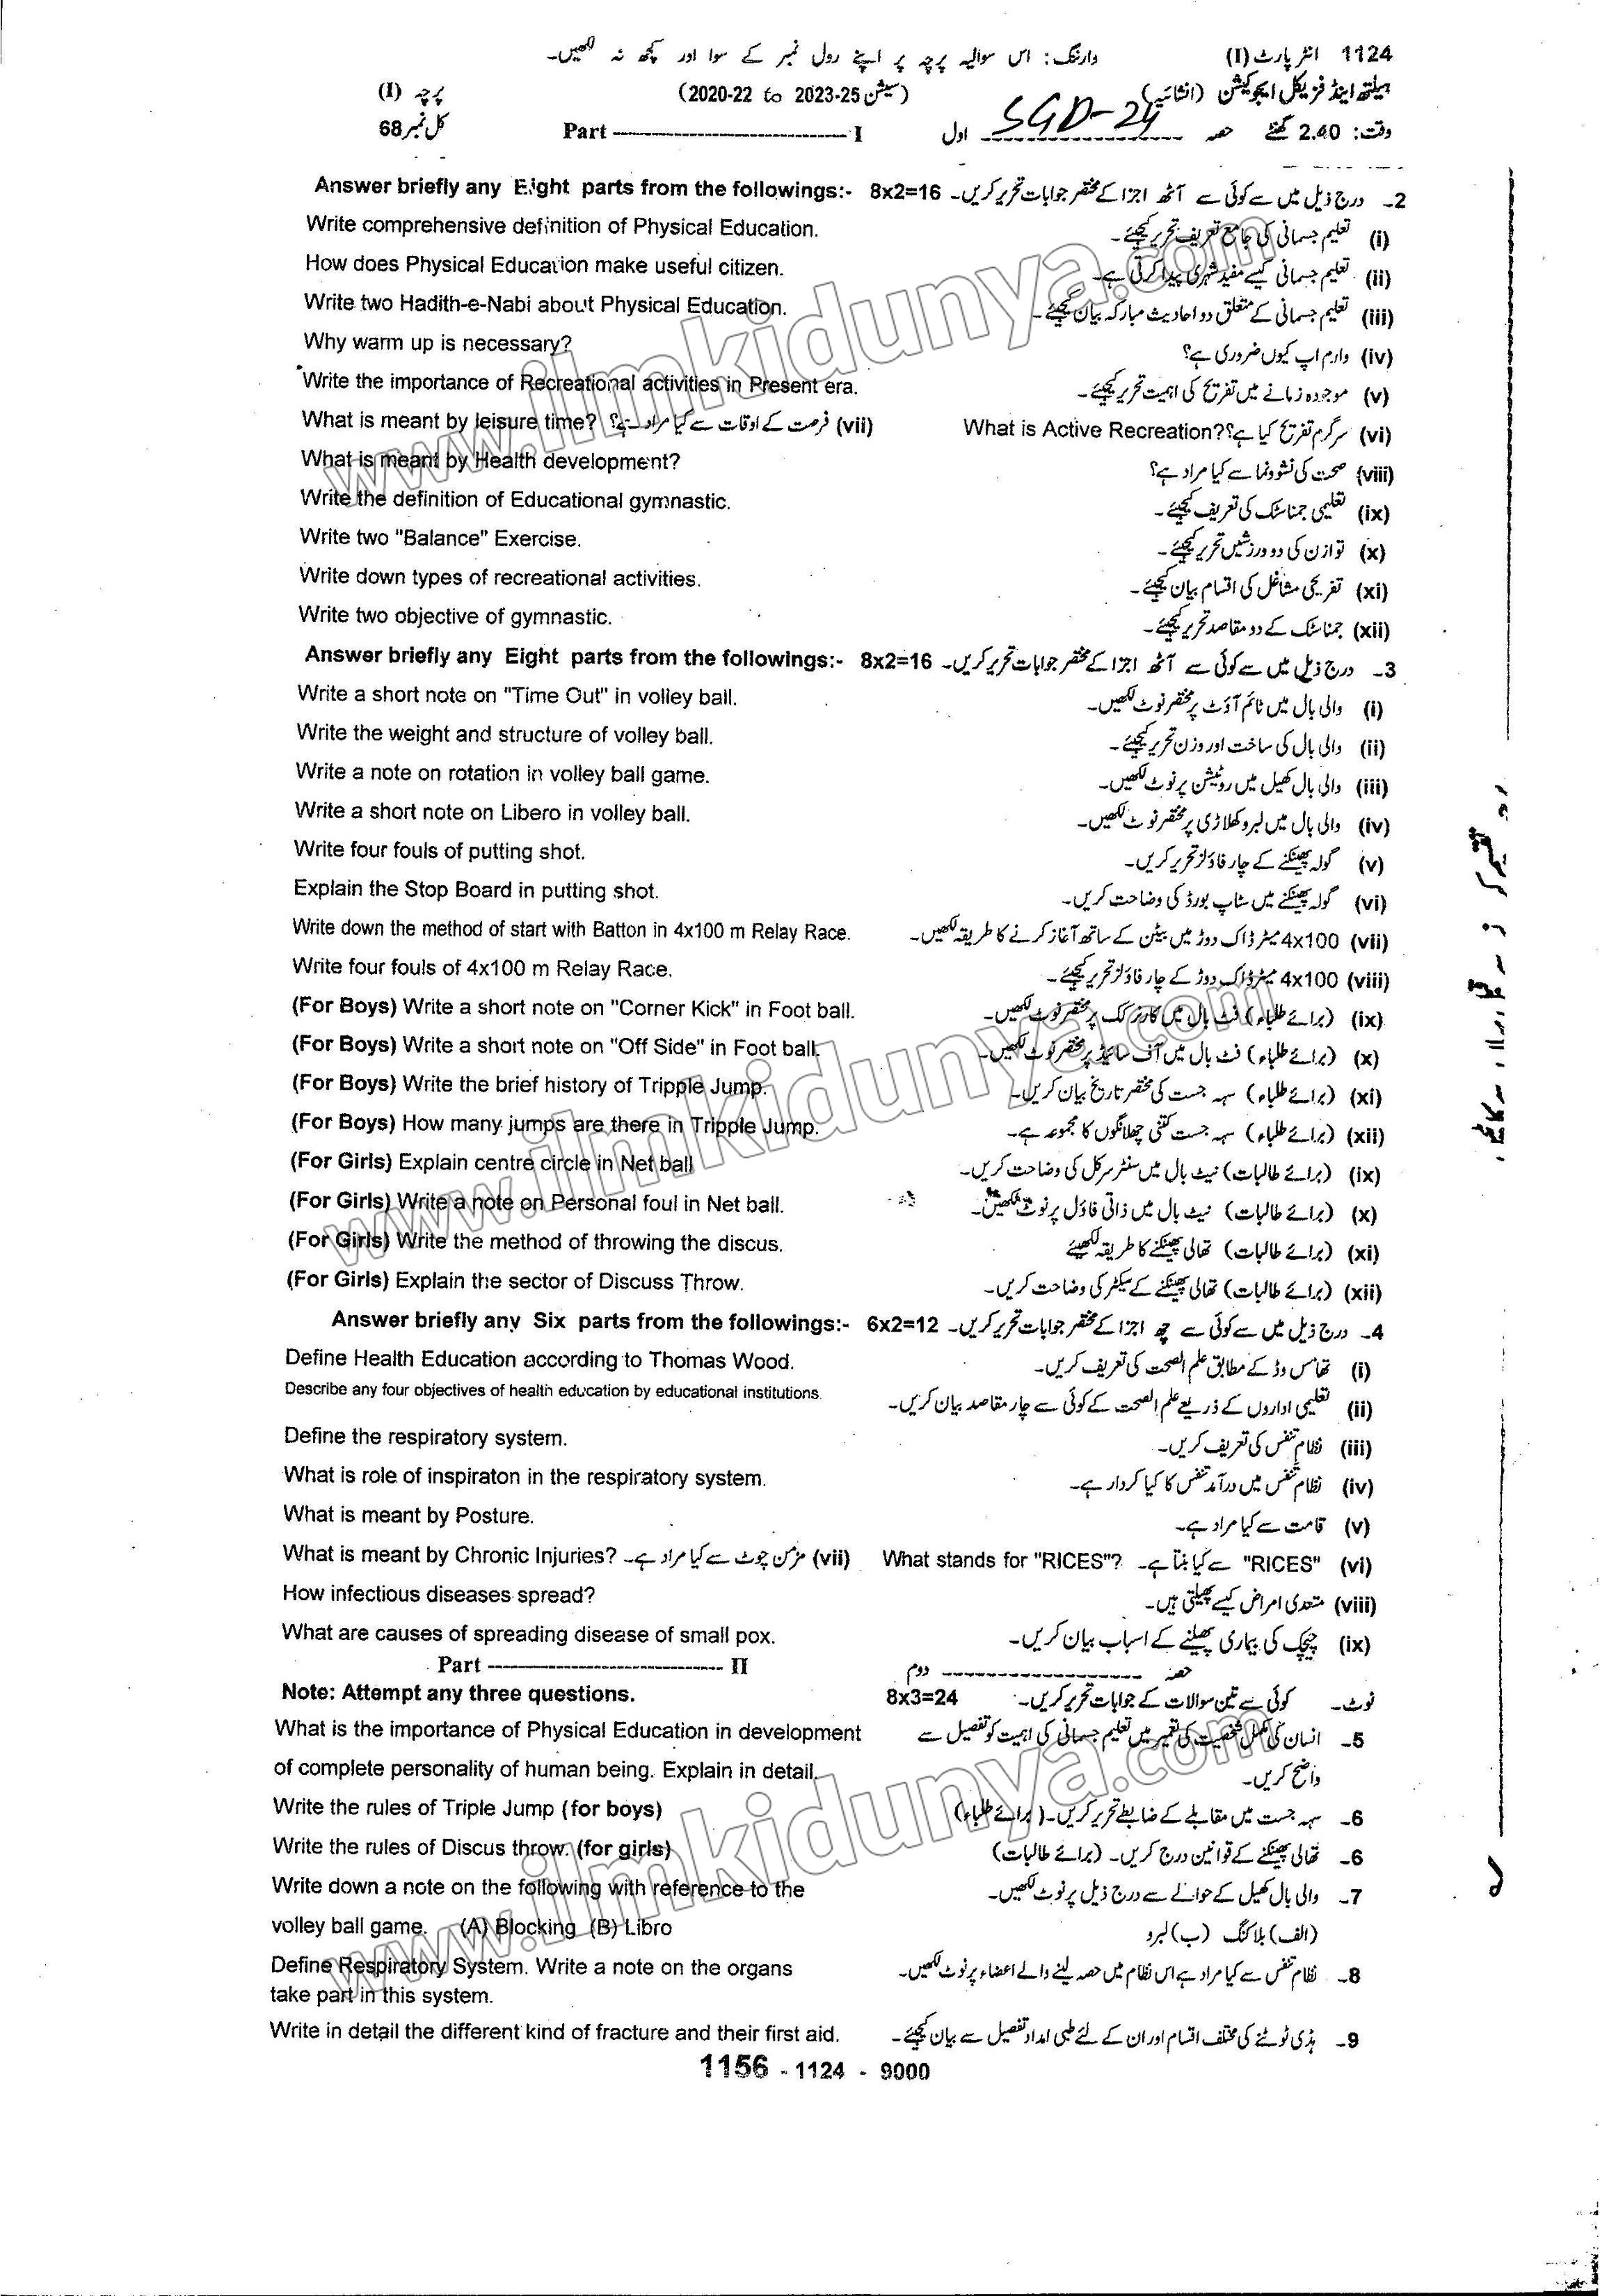 1124 انٹر پارٹ (I) وارننگ: اس سوالیہ پرچہ پر اپنے رول نمبر کے سوا اور کچھ نہ لکھیں۔
ہیلتھ اینڈ فزیکل ایجوکیشن (انشائیہ) (سیشن 2020-22 to 2023-25) پرچہ (I)
وقت: 2.40 گھنٹے حصہ اول SGD-24 Part I کل نمبر 68
Answer briefly any Eight parts from the followings:- 8x2=16 2- درج ذیل میں سے کوئی سے آٹھ اجزا کے مختصر جوابات تحریر کریں۔
Write comprehensive definition of Physical Education. (i) تعلیم جسمانی کی جامع تعریف تحریر کیجیئے۔
How does Physical Education make useful citizen. (ii) تعلیم جسمانی کیسے مفید شہری پیدا کرتی ہے۔
Write two Hadith-e-Nabi about Physical Education. (iii) تعلیم جسمانی کے متعلق دو احادیث مبارکہ بیان کیجیئے۔
Why warm up is necessary? (iv) وارم اپ کیوں ضروری ہے؟
Write the importance of Recreational activities in Present era. (v) موجودہ زمانے میں تفریح کی اہمیت تحریر کیجیئے۔
What is meant by leisure time? (vii) فرصت کے اوقات سے کیا مراد ہے؟ What is Active Recreation? (vi) سرگرم تفریح کیا ہے؟
What is meant by Health development? (viii) صحت کی نشوونما سے کیا مراد ہے؟
Write the definition of Educational gymnastic. (ix) تعلیمی جمناسٹک کی تعریف کیجیئے۔
Write two "Balance" Exercise. (x) توازن کی دو ورزشیں تحریر کیجیئے۔
Write down types of recreational activities. (xi) تفریحی مشاغل کی اقسام بیان کیجیئے۔
Write two objective of gymnastic. (xii) جمناسٹک کے دو مقاصد تحریر کیجیئے۔
Answer briefly any Eight parts from the followings:- 8x2=16 3- درج ذیل میں سے کوئی سے آٹھ اجزا کے مختصر جوابات تحریر کریں۔
Write a short note on "Time Out" in volley ball. (i) والی بال میں ٹائم آؤٹ پر مختصر نوٹ لکھیں۔
Write the weight and structure of volley ball. (ii) والی بال کی ساخت اور وزن تحریر کیجیئے۔
Write a note on rotation in volley ball game. (iii) والی بال کھیل میں روٹیشن پر نوٹ لکھیں۔
Write a short note on Libero in volley ball. (iv) والی بال میں لبرو کھلاڑی پر مختصر نوٹ لکھیں۔
Write four fouls of putting shot. (v) گولہ پھینکنے کے چار فاؤلز تحریر کریں۔
Explain the Stop Board in putting shot. (vi) گولہ پھینکنے میں سٹاپ بورڈ کی وضاحت کریں۔
Write down the method of start with Batton in 4x100 m Relay Race. (vii) 4x100 میٹر ڈاک دوڑ میں بیٹن کے ساتھ آغاز کرنے کا طریقہ لکھیں۔
Write four fouls of 4x100 m Relay Race. (viii) 4x100 میٹر ڈاک دوڑ کے چار فاؤلز تحریر کیجیئے۔
(For Boys) Write a short note on "Corner Kick" in Foot ball. (ix) (برائے طلباء) فٹ بال میں کارنر کک پر مختصر نوٹ لکھیں۔
(For Boys) Write a short note on "Off Side" in Foot ball. (x) (برائے طلباء) فٹ بال میں آف سائیڈ پر مختصر نوٹ لکھیں۔
(For Boys) Write the brief history of Tripple Jump. (xi) (برائے طلباء) سہہ جست کی مختصر تاریخ بیان کریں۔
(For Boys) How many jumps are there in Tripple Jump. (xii) (برائے طلباء) سہہ جست کتنی چھلانگوں کا مجموعہ ہے۔
(For Girls) Explain centre circle in Net ball (ix) (برائے طالبات) نیٹ بال میں سنٹر سرکل کی وضاحت کریں۔
(For Girls) Write a note on Personal foul in Net ball. (x) (برائے طالبات) نیٹ بال میں ذاتی فاؤل پر نوٹ لکھیں۔
(For Girls) Write the method of throwing the discus. (xi) (برائے طالبات) تھالی پھینکنے کا طریقہ لکھیئے
(For Girls) Explain the sector of Discuss Throw. (xii) (برائے طالبات) تھالی پھینکنے کے سیکٹر کی وضاحت کریں۔
Answer briefly any Six parts from the followings:- 6x2=12 4- درج ذیل میں سے کوئی سے چھ اجزا کے مختصر جوابات تحریر کریں۔
Define Health Education according to Thomas Wood. (i) تھامس وڈ کے مطابق علم الصحت کی تعریف کریں۔
Describe any four objectives of health education by educational institutions. (ii) تعلیمی اداروں کے ذریعے علم الصحت کے کوئی سے چار مقاصد بیان کریں۔
Define the respiratory system. (iii) نظام تنفس کی تعریف کریں۔
What is role of inspiraton in the respiratory system. (iv) نظام تنفس میں درآمد تنفس کا کیا کردار ہے۔
What is meant by Posture. (v) قامت سے کیا مراد ہے۔
What is meant by Chronic Injuries? (vii) مزمن چوٹ سے کیا مراد ہے۔ What stands for "RICES"? (vi) "RICES" سے کیا بنتا ہے۔
How infectious diseases spread? (viii) متعدی امراض کیسے پھیلتی ہیں۔
What are causes of spreading disease of small pox. (ix) چیچک کی بیماری پھیلنے کے اسباب بیان کریں۔
Part II حصہ دوم
Note: Attempt any three questions. 8x3=24 نوٹ۔ کوئی سے تین سوالات کے جوابات تحریر کریں۔
What is the importance of Physical Education in development 5- انسان کی مکمل شخصیت کی تعمیر میں تعلیم جسمانی کی اہمیت کو تفصیل سے
of complete personality of human being. Explain in detail. واضح کریں۔
Write the rules of Triple Jump (for boys) 6- سہہ جست میں مقابلے کے ضابطے تحریر کریں۔ (برائے طلباء)
Write the rules of Discus throw. (for girls) 6- تھالی پھینکنے کے قوانین درج کریں۔ (برائے طالبات)
Write down a note on the following with reference to the 7- والی بال کھیل کے حوالے سے درج ذیل پر نوٹ لکھیں۔
volley ball game. (A) Blocking (B) Libro (الف) بلاکنگ (ب) لبرو
Define Respiratory System. Write a note on the organs 8- نظام تنفس سے کیا مراد ہے اس نظام میں حصہ لینے والے اعضاء پر نوٹ لکھیں۔
take part in this system.
Write in detail the different kind of fracture and their first aid. 9- ہڈی ٹوٹنے کی مختلف اقسام اور ان کے لئے طبی امداد تفصیل سے بیان کیجیئے۔
1156 - 1124 - 9000
www.ilmkidunya.com
www.ilmkidunya.com
www.ilmkidunya.com